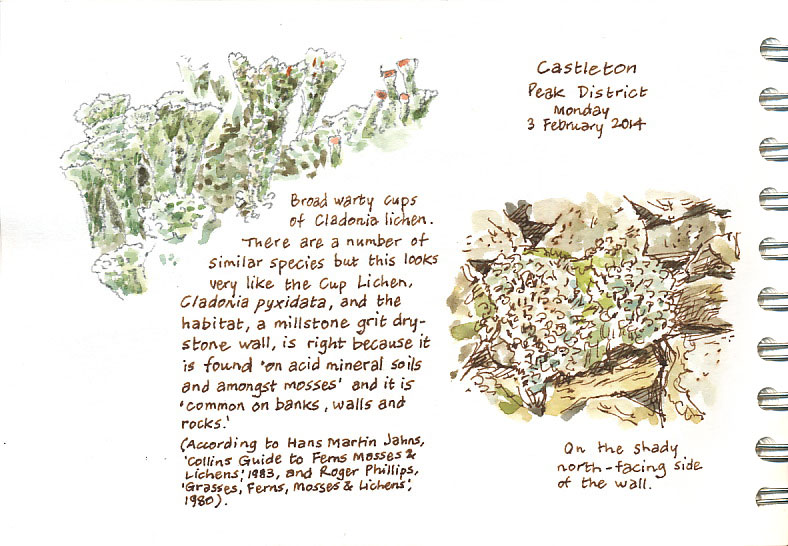 Castleton
Peak District
Monday
3 February 2014
Broad warty cups
of Cladonia lichen.
There are a number of
similar species but this looks
very like the Cup Lichen,
Cladonia pyxidata, and the
habitat, a millstone grit dry-
stone wall, is right because it
is found 'on acid mineral soils
and amongst mosses' and it is
'common on banks, walls and
rocks.'
(According to Hans Martin Jahns,
'Collins Guide to Ferns Mosses &
Lichens', 1983, and Roger Phillips,
'Grasses, Ferns, Mosses & Lichens',
1980).
On the shady
north-facing side
of the wall.